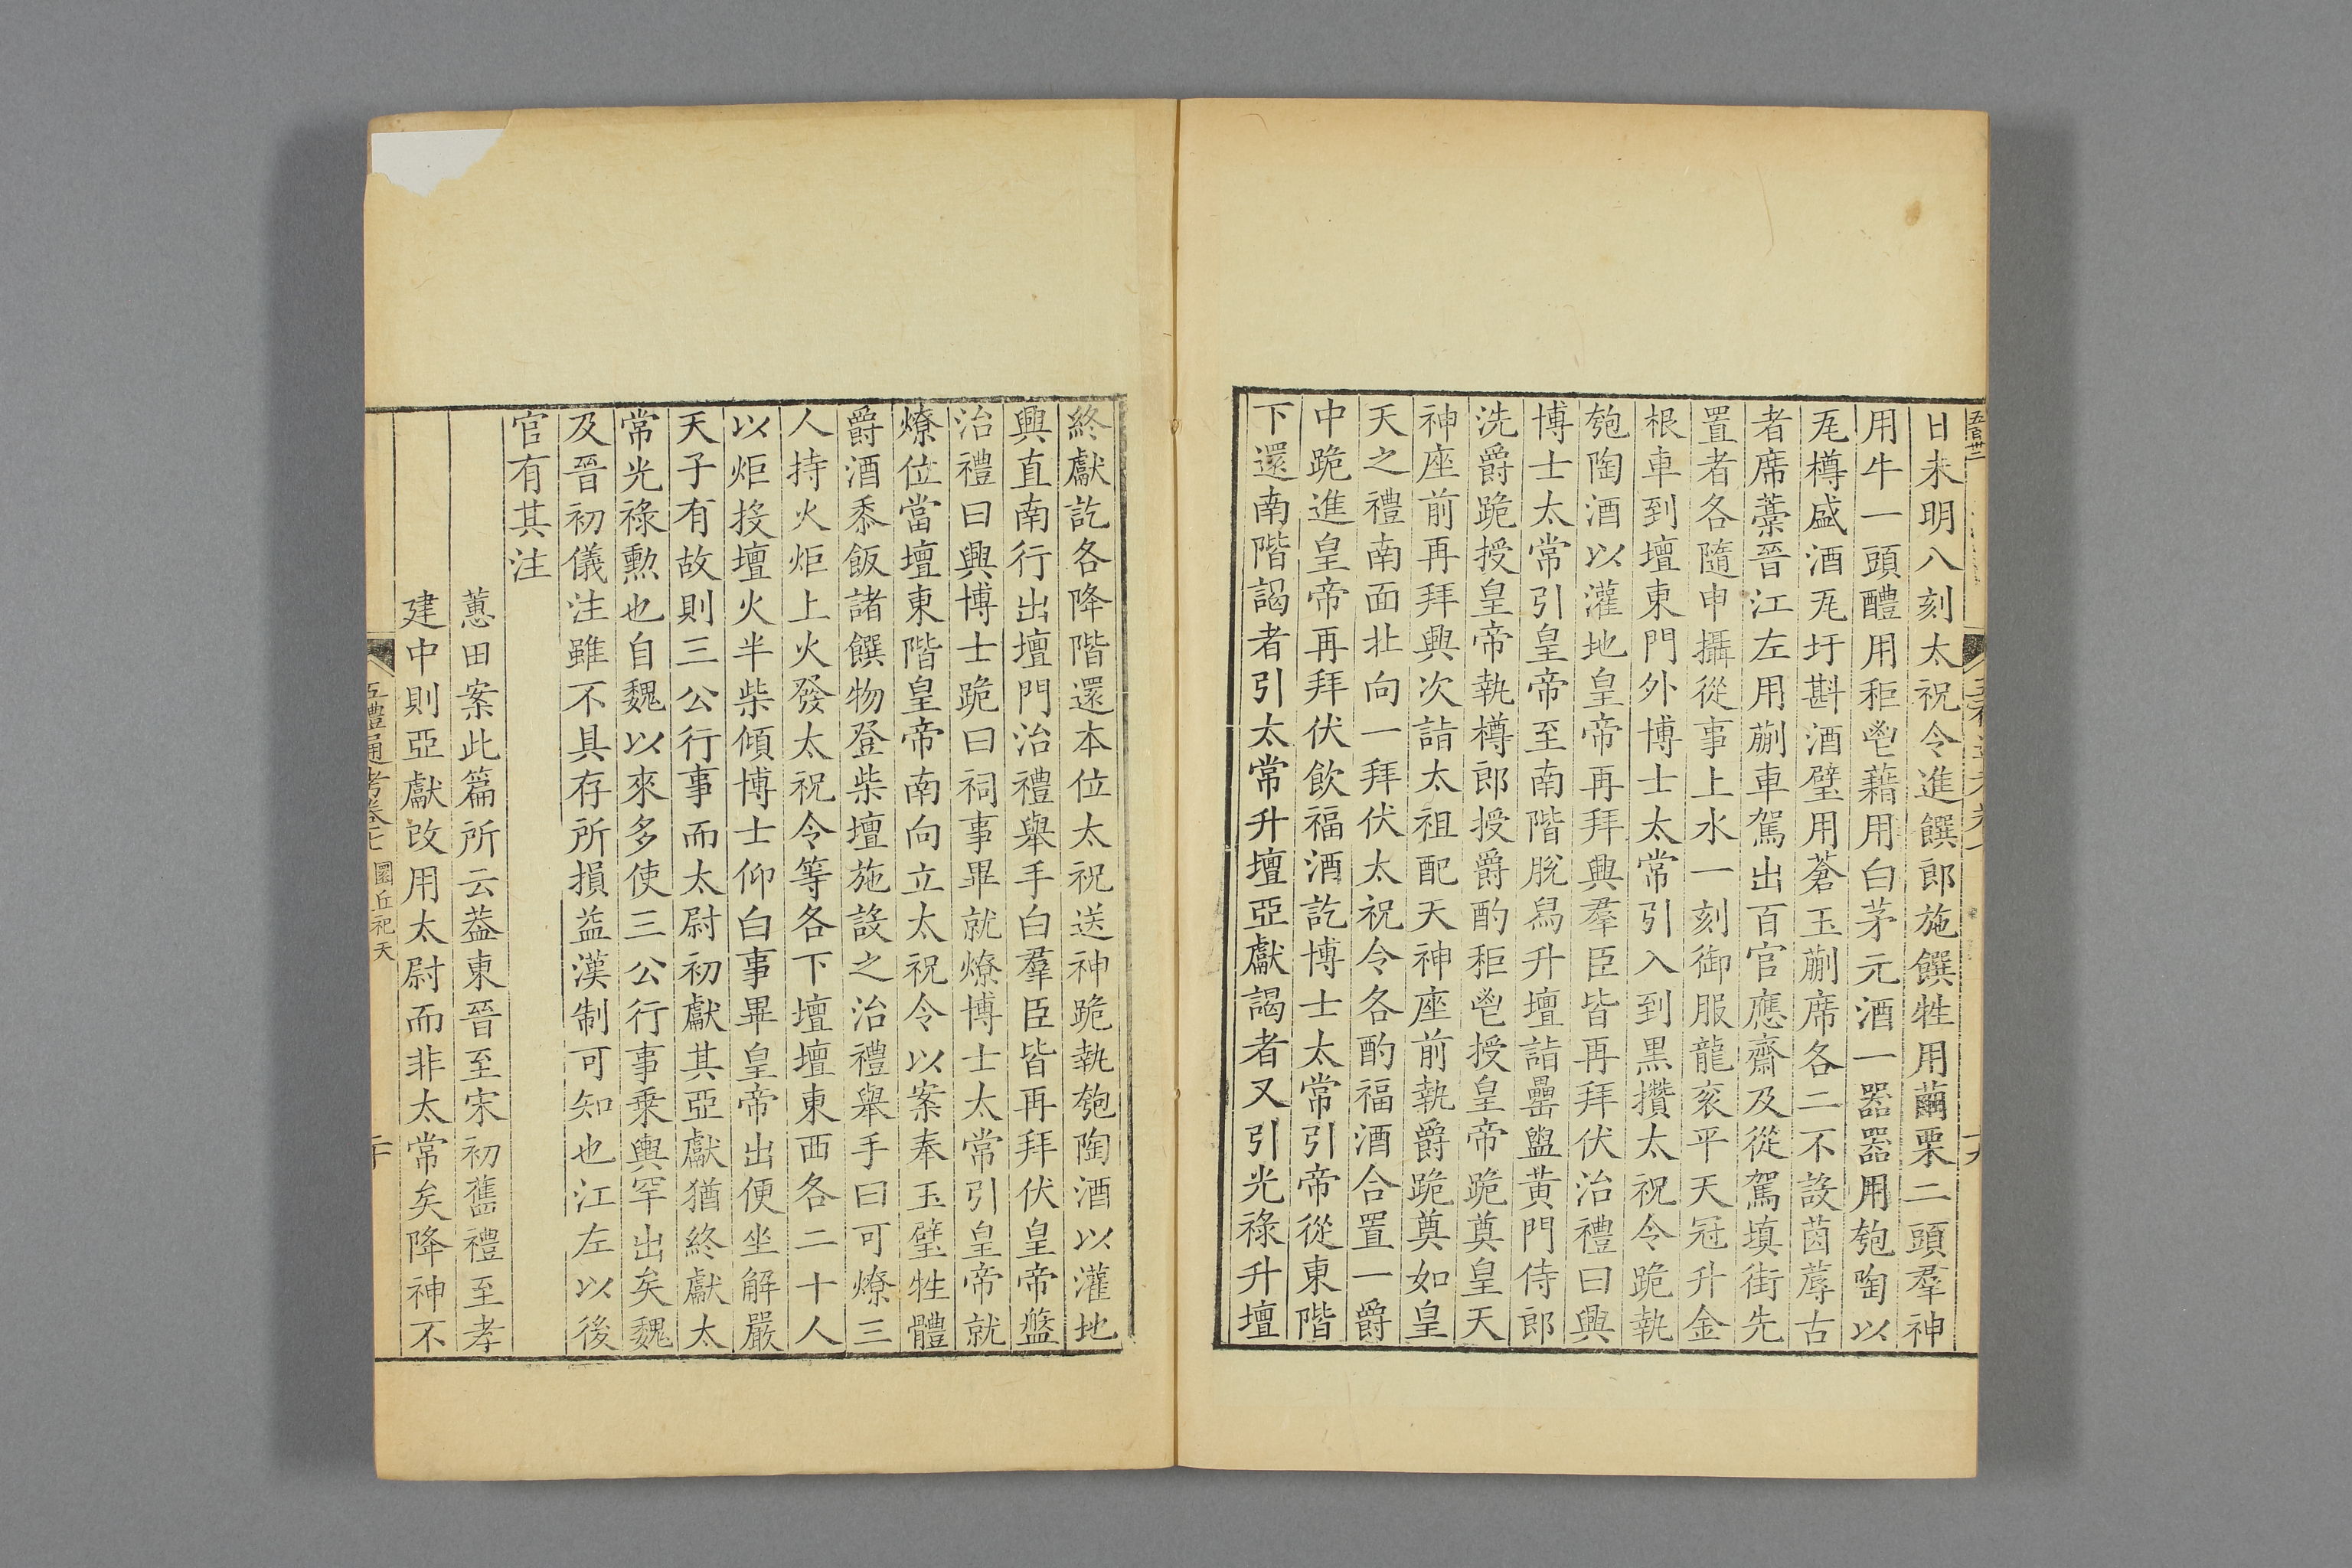 日未明八刻太祝令進饌郎施饌牲用繭栗二頭羣神
用牛一頭醴用秬鬯藉用白茅元酒一器器用匏陶以
瓦樽盛酒瓦圩斟酒璧用蒼玉蒯席各二不設茵蓐古
者席藁晉江左用蒯車駕出百官應齋及從駕填街先
置者各隨申攝從事上水一刻御服龍衮平天冠升金
根車到壇東門外博士太常引入到黑攢太祝令跪執
匏陶酒以灌地皇帝再拜興羣臣皆再拜伏治禮曰興
博士太常引皇帝至南階脫舄升壇詣罍盥黃門侍郎
洗爵跪授皇帝執樽郎授爵酌秬鬯授皇帝跪奠皇天
神座前再拜興次詣太祖配天神座前執爵跪奠如皇
天之禮南面北向一拜伏太祝令各酌福酒合置一爵
中跪進皇帝再拜伏飲福酒訖博士太常引帝從東階
下還南階謁者引太常升壇亞獻謁者又引光祿升壇
終獻訖各降階還本位太祝送神跪執匏陶酒以灌地
興直南行出壇門治禮舉手白羣臣皆再拜伏皇帝盤
治禮曰興博士跪曰祠事畢就燎博士太常引皇帝就
燎位當壇東階皇帝南向立太祝令以案奉玉璧牲體
爵酒黍飯諸饌物登柴壇施設之治禮舉手曰可燎三
人持火炬上火發太祝令等各下壇壇東西各二十人
以炬投壇火半柴傾博士仰白事畢皇帝出便坐解嚴
天子有故則三公行事而太尉初獻其亞獻猶終獻太
常光祿勲也自魏以來多使三公行事乗輿罕出矣魏
及晉初儀注雖不具存所損益漢制可知也江左以後
官有其注
蕙田案此篇所云葢東晉至宋初舊禮至孝
建中則亞獻改用太尉而非太常矣降神不
五禮通考卷七 圜丘祀天